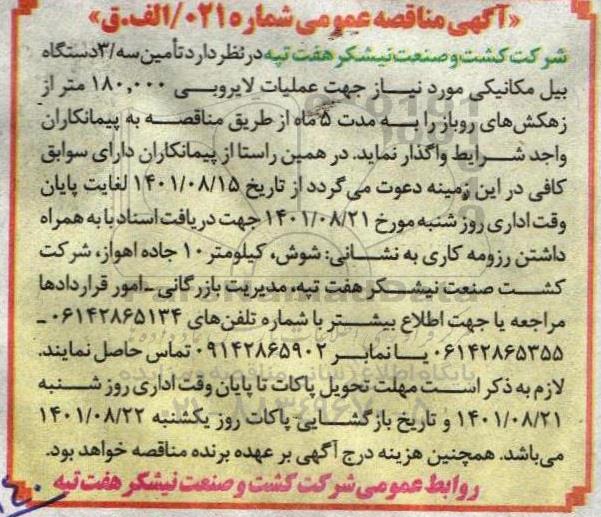 «آگهی مناقصه عمومی شماره ۰۲۱/الف.ق»
شرکت کشت و صنعت نیشکر هفت تپه در نظر دارد تأمین سه/۳دستگاه
بیل مکانیکی مورد نیاز جهت عملیات لایروبی ۱۸۰,۰۰۰ متر از
زهکش‌های روباز را به مدت ۵ ماه از طریق مناقصه به پیمانکاران
واجد شرایط واگذار نماید. در همین راستا از پیمانکاران دارای سوابق
کافی در این زمینه دعوت می‌گردد از تاریخ ۱۴۰۱/۰۸/۱۵ لغایت پایان
وقت اداری روز شنبه مورخ ۱۴۰۱/۰۸/۲۱ جهت دریافت اسناد با به همراه
داشتن رزومه کاری به نشانی: شوش، کیلومتر ۱۰ جاده اهواز، شرکت
کشت صنعت نیشکر هفت تپه، مدیریت بازرگانی -امور قراردادها
مراجعه یا جهت اطلاع بیشتر با شماره تلفن‌های ۰۶۱۴۲۸۶۵۱۳۴ -
۰۶۱۴۲۸۶۵۳۵۵ یا نمابر ۰۹۱۴۲۸۶۵۹۰۲ تماس حاصل نمایند.
لازم به ذکر است مهلت تحویل پاکات تا پایان وقت اداری روز شنبه
۱۴۰۱/۰۸/۲۱ و تاریخ بازگشایی پاکات روز یکشنبه ۱۴۰۱/۰۸/۲۲
می‌باشد. همچنین هزینه درج آگهی بر عهده برنده مناقصه خواهد بود.
روابط عمومی شرکت کشت و صنعت نیشکر هفت تپه